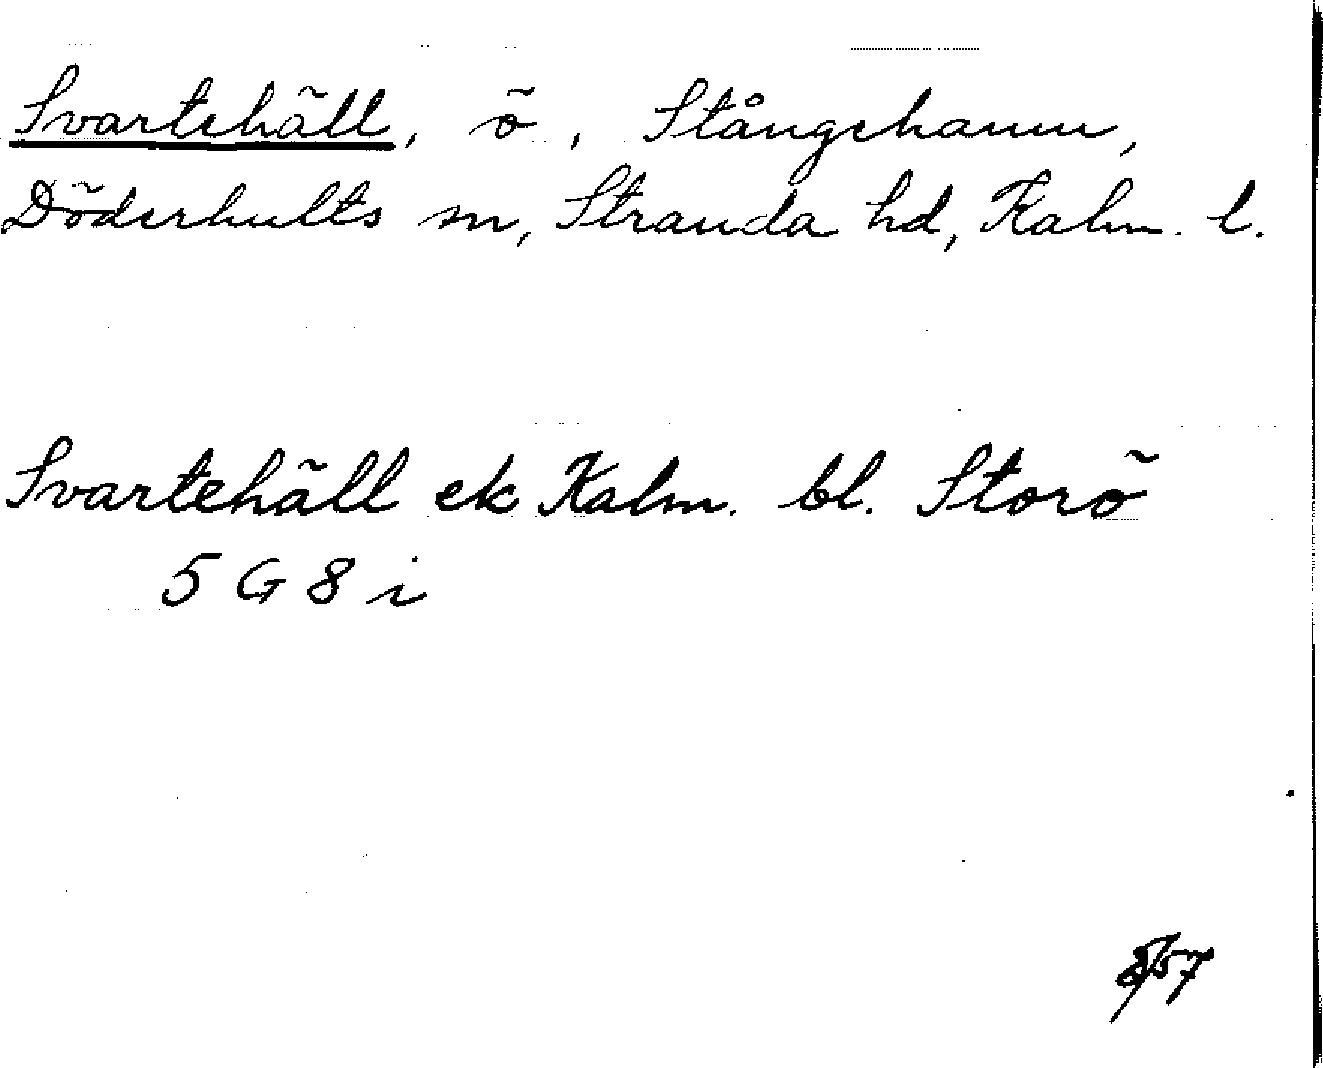 Svartehäll, ö, Stångehamn,
Döderhults sn, Stranda hd, Kalm. l.
Svartehäll ek Kalm. bl. Storö
5 G 8 i